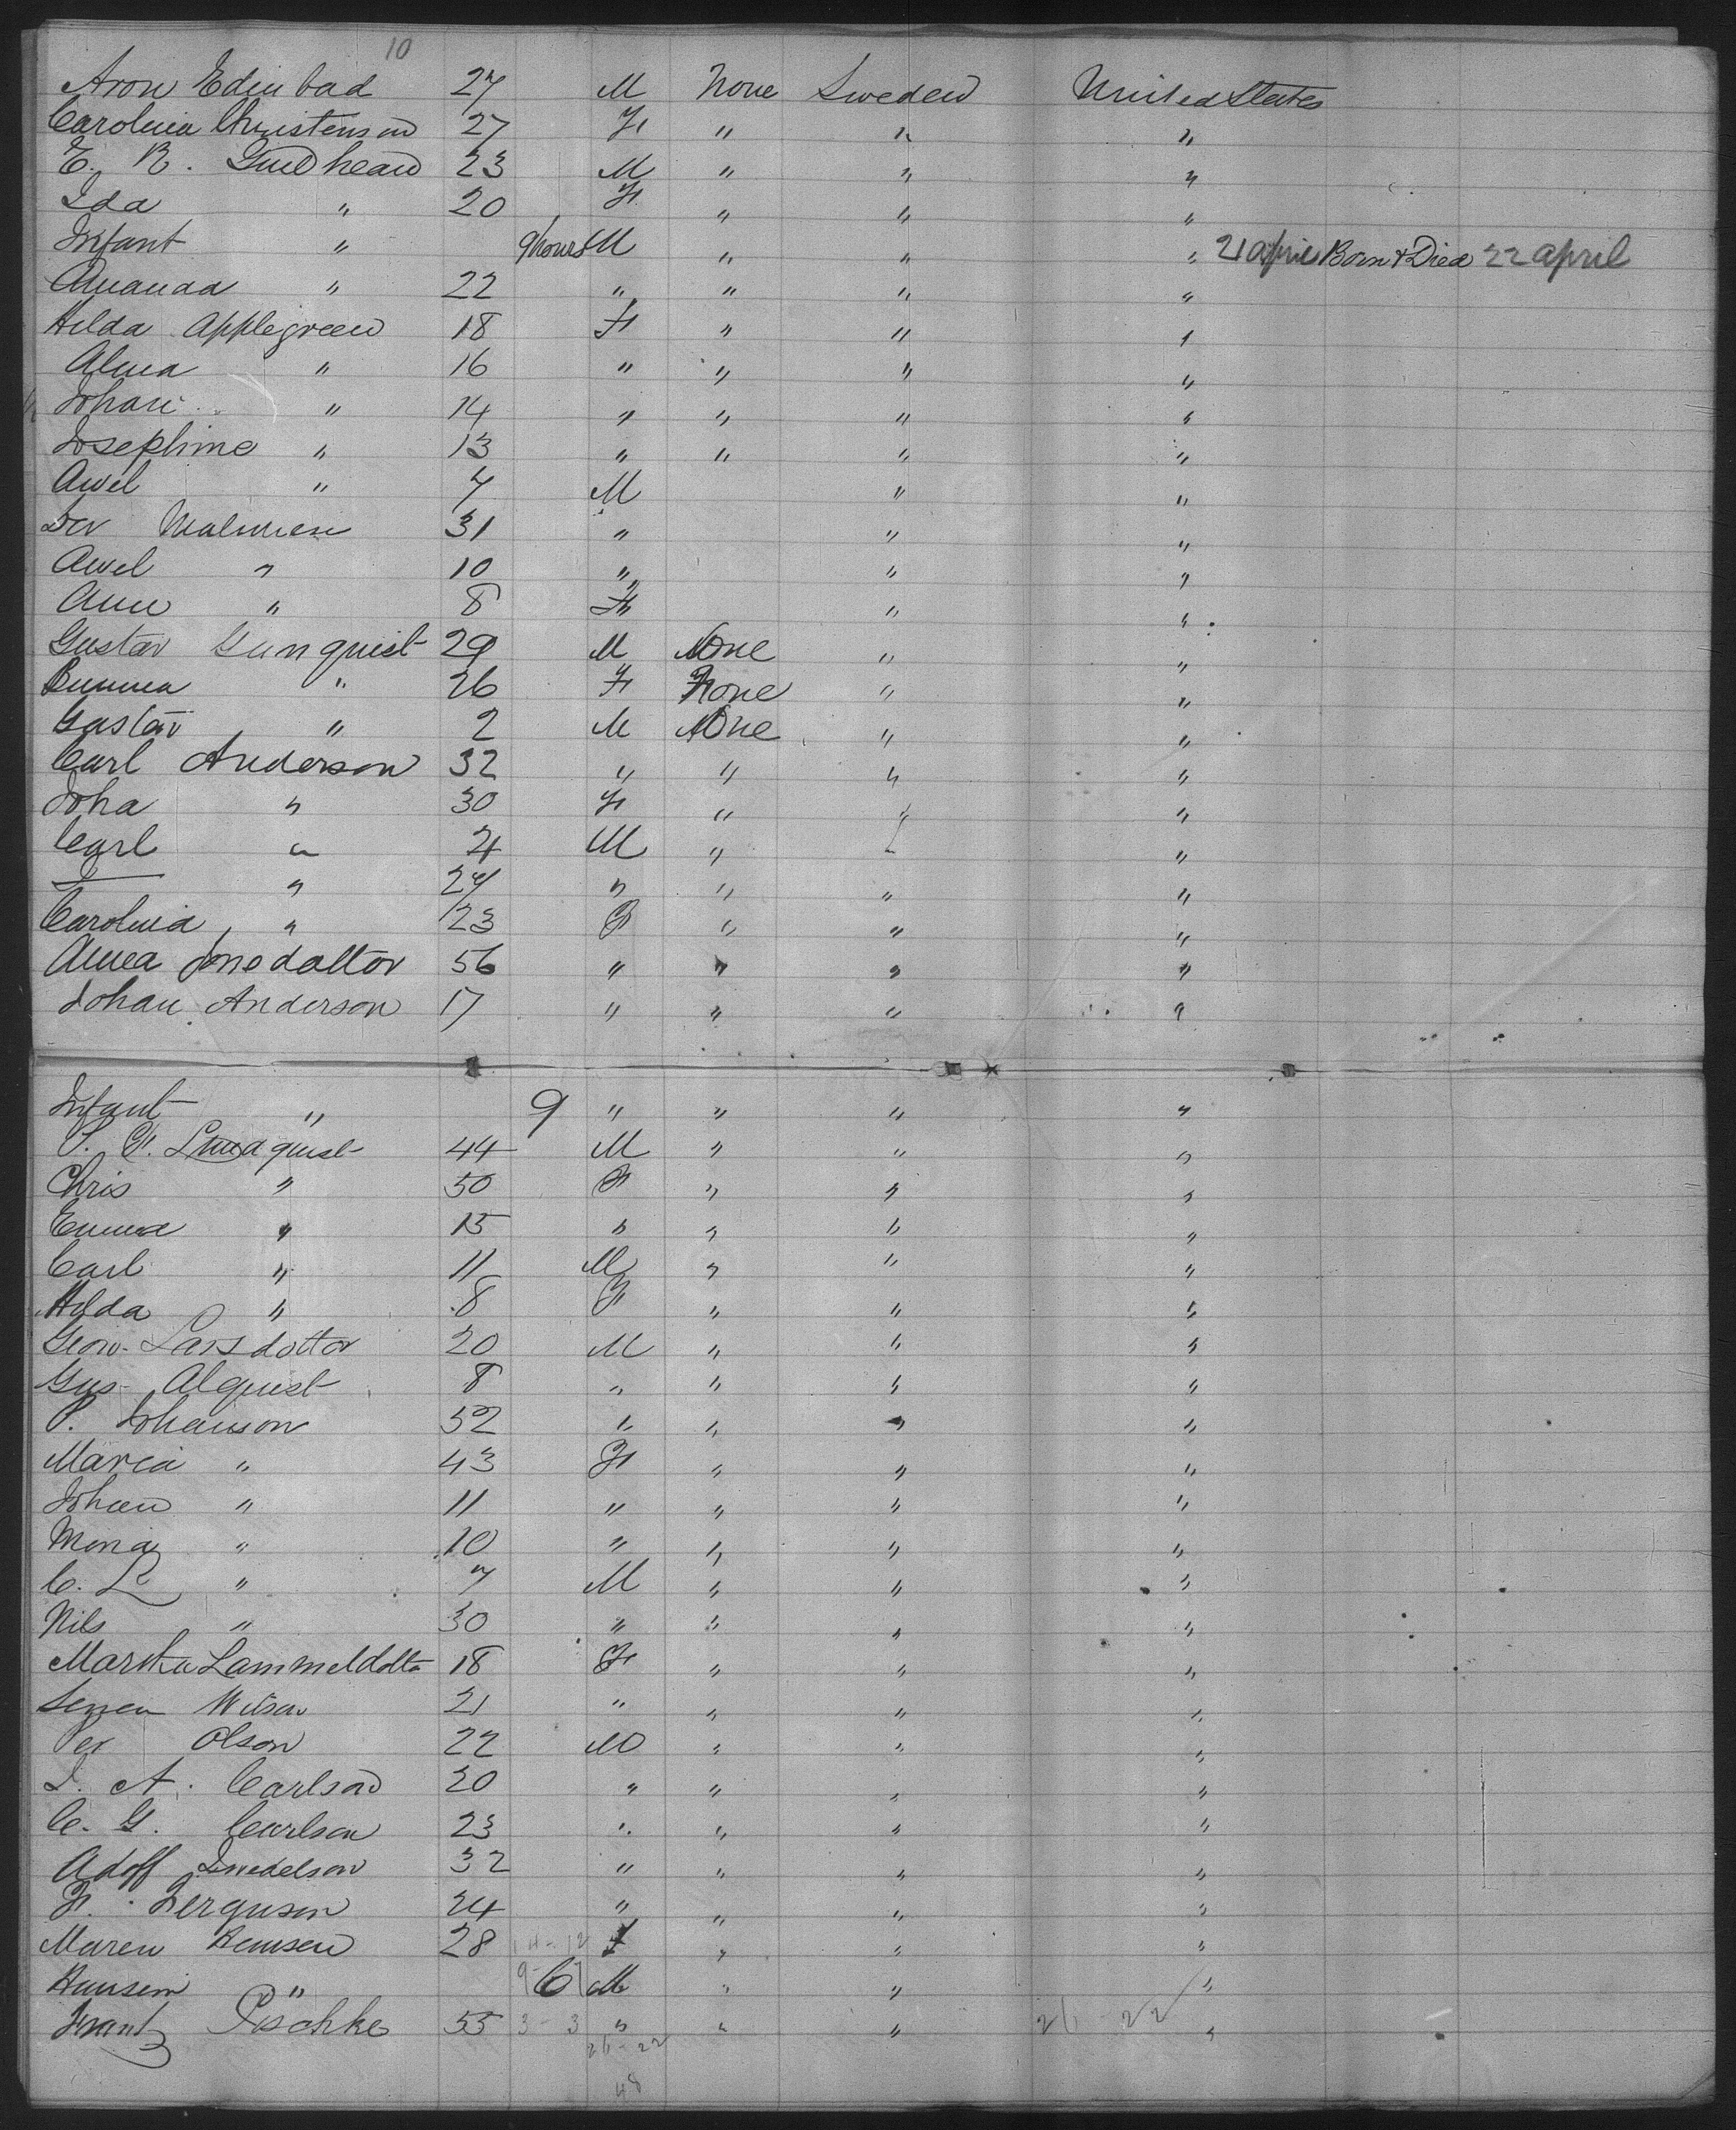 10
Aron Edinbad 27 M None Sweden United States
Carolina Christenson 27 F " " "
E. R. Gudheand 23 M " " "
Ida " 20 F " " "
Infant " 9 hours M " " " 21 april Born & Died 22 april
Amanda " 22 " " " "
Hilda Applegreen 18 F " " "
Alma " 16 " " " "
Johan " 14 " " " "
Josephine " 13 " " " "
Axel " 7 M " "
Malmen 31 " " "
Axel " 10 " " "
Ann " 8 F " "
Gustav Gunquist 29 M None " "
Emma " 26 F None " "
Gustav " 2 M None " "
Carl Anderson 32 " " " "
Joha " 30 F " " "
Carl " 4 M " " "
— " 27 " " " "
Carolina " 23 F " " "
Anna Jonedottor 56 " " " "
Johan Anderson 17 " " " "
Infant " 9 " " " "
P. F. Lindquist 44 M " " "
Chris " 50 F " " "
Emma " 15 " " " "
Carl " 11 M " " "
Hilda " 8 F " " "
Larsdottor 20 M " " "
Gus Alquist 8 " " " "
P. Johanson 52 " " " "
Maria " 43 F " " "
Johan " 11 " " " "
Mona " 10 " " " "
C. L " 7 M " " "
Nils " 30 " " " "
Martha Lammeldotto 18 F " " "
Wilson 21 " " " "
Per Olson 22 M " " "
I. A. Carlson 20 " " " "
C. G. Carlson 23 " " " "
Adoff 32 " " " "
F. Ferguson 24 " " " "
Maren Hensen 28 14-12 F " " "
" 6 M " " "
Frantz Poschke 55 3-3 " " " 26-22 "
26-22
48